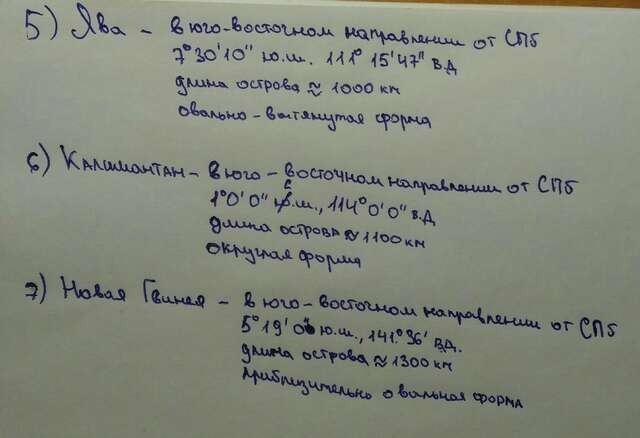 5) Ява - в юго-восточном направлении от СПб
7°30'10" ю.ш. 111° 15'47" в.д
длина острова ≈ 1000 км
овально-вытянутая форма
6) Калимантан - в юго-восточном направлении от СПб
1°0'0" с.ш., 114°0'0" в.д
длина острова ≈ 1100 км
округлая форма
7) Новая Гвинея - в юго-восточном направлении от СПб
5°19'0" ю.ш., 141°36' в.д.
длина острова ≈ 1300 км
приблизительно овальная форма